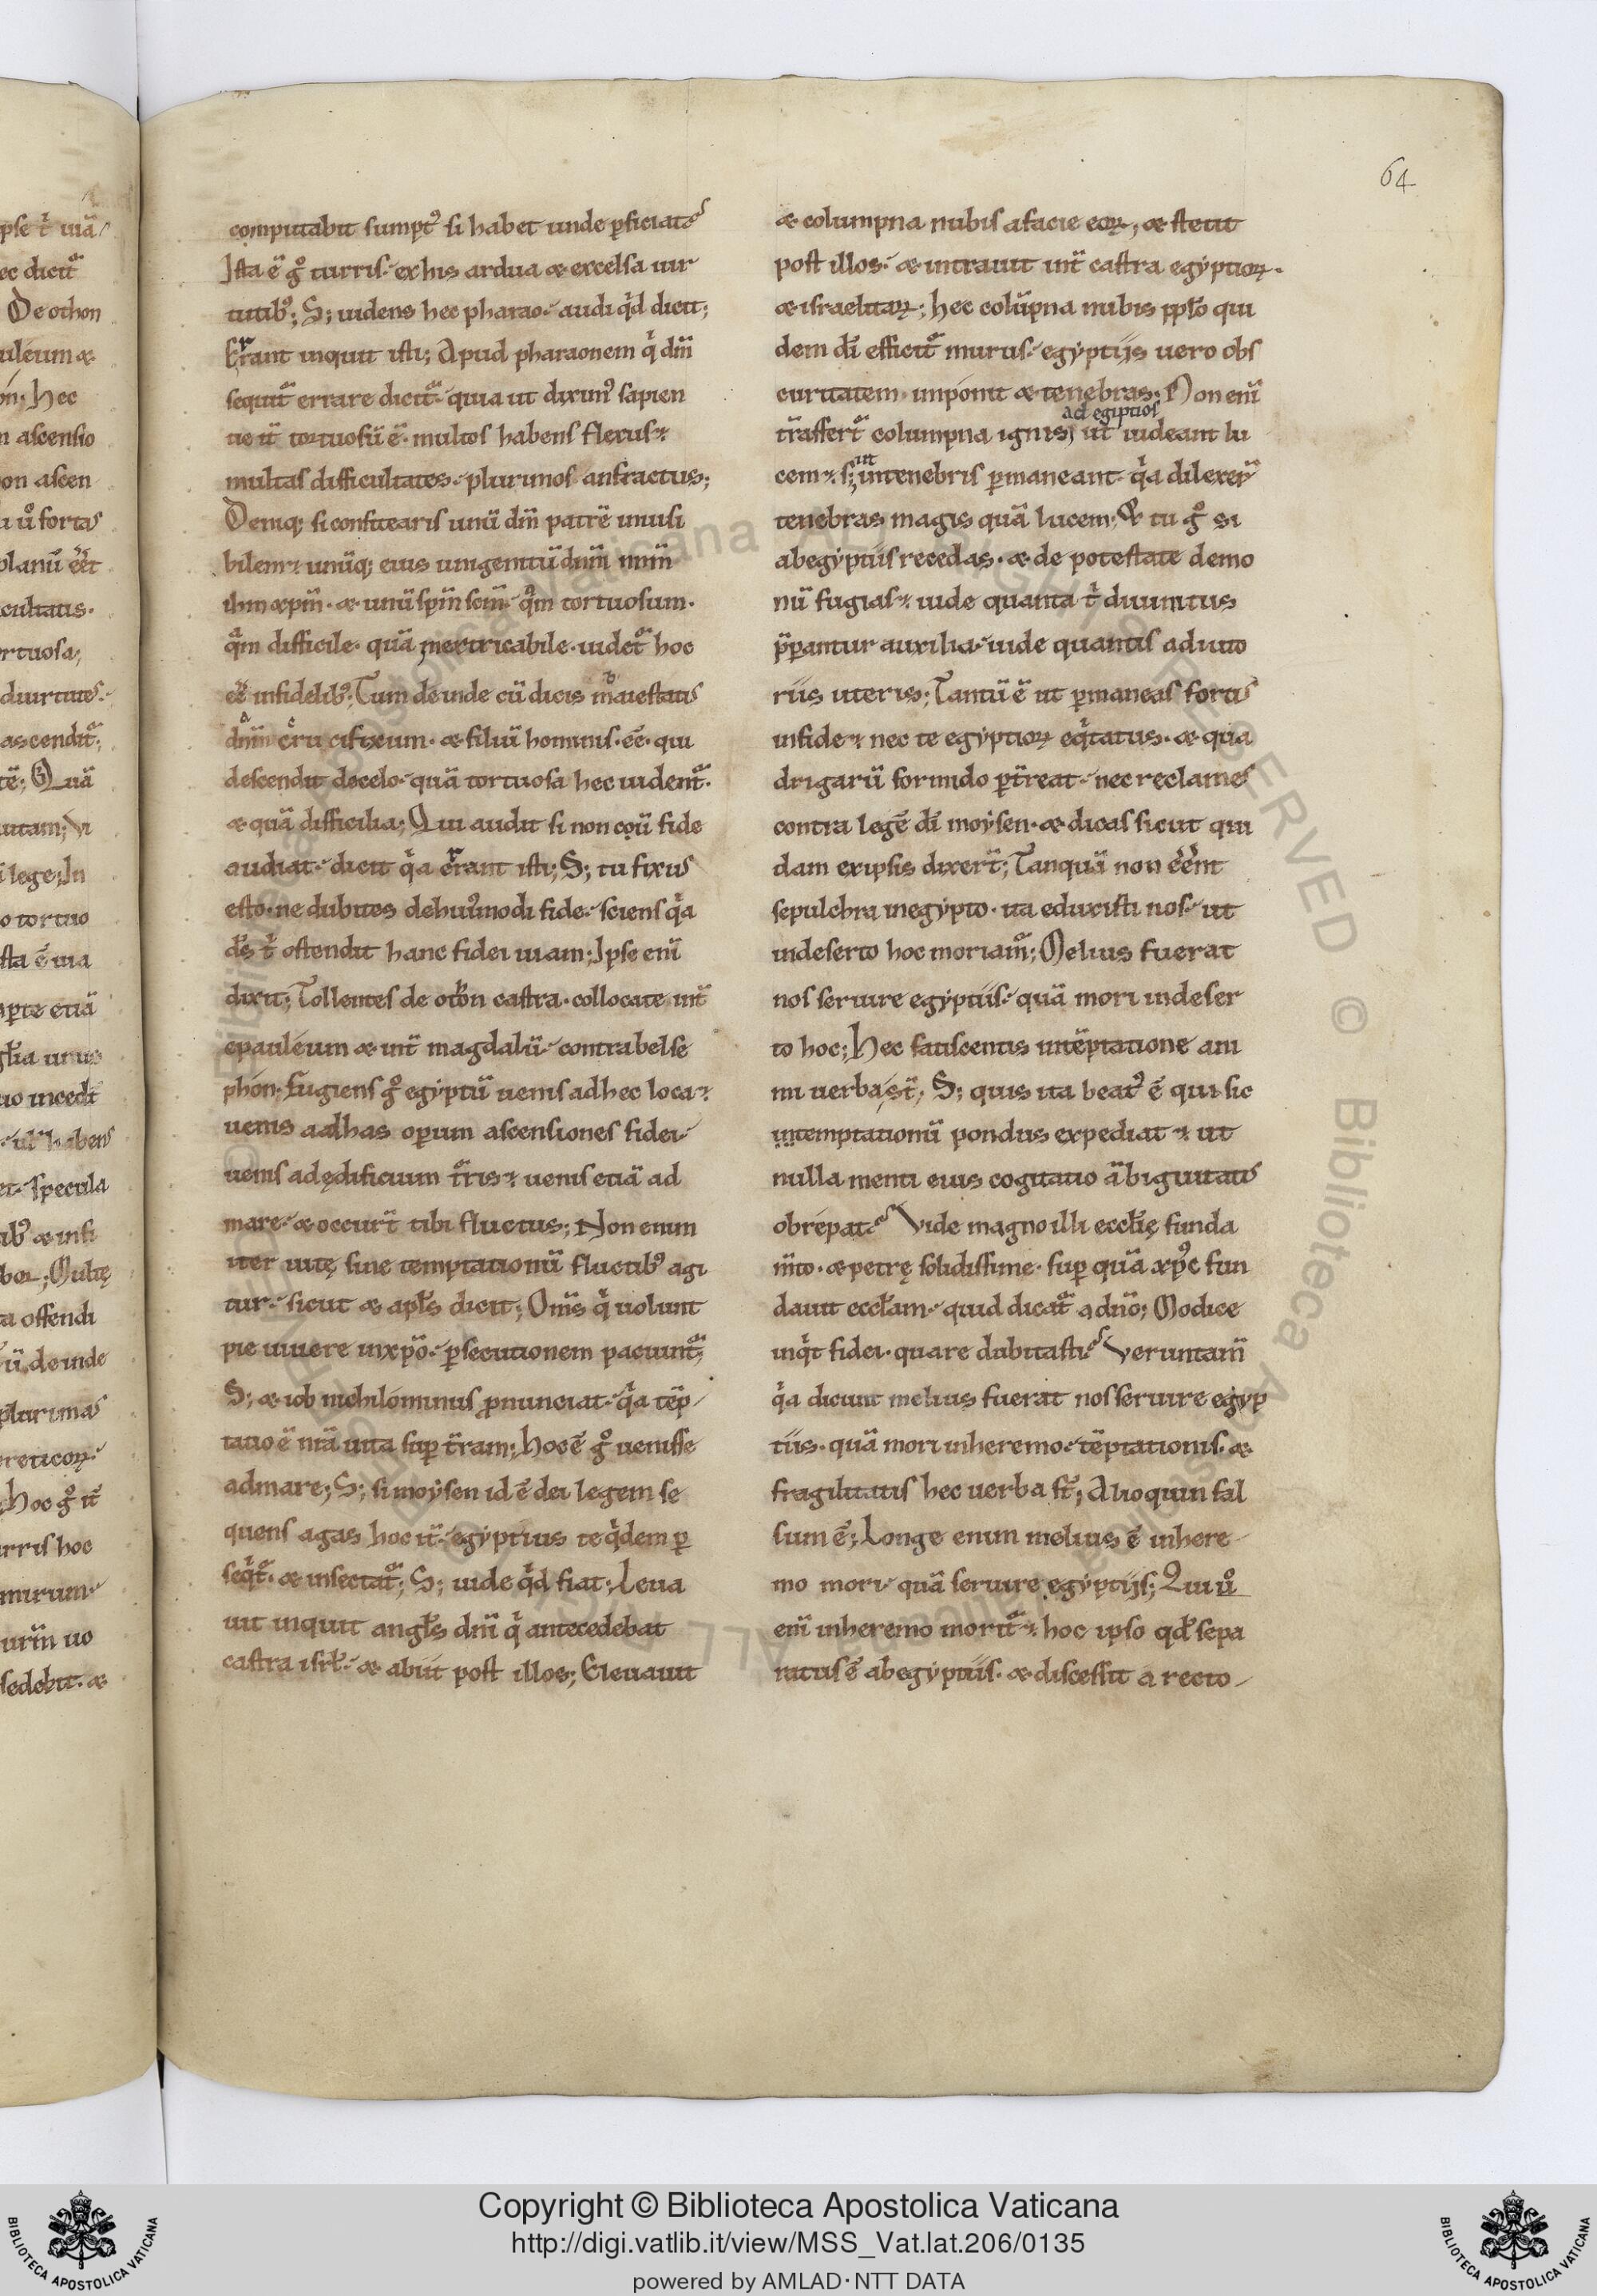 64
computabit sumpt᷒ si habet unde ꝑficiat᷒
Ista ē gͦ turris. ex his ardua æ excelsa uir
tutib᷒; S; uidens hec pharao. audi qͥd dicit;
Errant inquit isti; Apud pharaonem qͥ dm̄
sequit᷑ errare dicit᷑. quia ut dixim᷒ sapien
tie it᷑ tortuosū ē. multos habens flexus.
multas difficultates. plurimos anfractus;
Deniq; si confitearis unū dm̄ patrē inuisi
bilem. unūq; eius unigenitū dnm̄ nrm̄
ihm æ xpm̄. æ unū spm̄ scm̄. qͦm tortuosum.
qͣm difficile. quā inextricabile. uidet᷑ hoc
eē infidelib᷒. Tum deinde cū dicis maiestatis
dnm̄ crucifixum. æ filiū hominis. eē. qui
descendit decelo. quā tortuosa hec uident᷑.
æ quā difficilia; Qui audit si non coū fide
audiat. dicit qͥa errant isti; S; tu fixus
esto. ne dubites dehui᷒modi fide. sciens qͥa
ds̄ tͥ ostendit hanc fidei uiam; Ipse enī
dixit; Tollentes de othon castra. collocate int᷑
epauleum æ int᷑ magdalū. contrabelse
phon. fugiens gͦ egyptū uenis adhec loca.
uenis ad has operum ascensiones fidei.
uenis adędificium t᷑ris. uenis etiā ad
mare. æ occurr̄t tibi fluctus; Non enim
iter uitę sine temptationū fluctib᷒ agi
tur. sicut æ apl̄s dicit; Om̄s qͥ uolunt
pie uiuere inxpo. ꝑsecutionem paciunt᷑;
S; æ iob nichilominus ꝓnunciat. qͥa tēp
tatio ē nr̄a uita suꝑ t᷑ram; hoc ē gͦ uenisse
admare; S; si moysen id ē dei legem se
quens agas hoc it᷑. egyptius te qͥdem ꝑ
seqͥt᷑. æ insectat᷑; S; uide qͥd fiat; Leua
uit inquit angl̄s dnī qͥ antecedebat
castra isrl̄. æ abiit post illos; Eleuauit
æ columpna nubis afacie eoꝝ, æ stetit
post illos. æ intrauit int᷑ castra egyptioꝝ.
æ israelitaꝝ; hec colūpna nubis pplo qui
dem dī efficit᷑ murus. egyptijs uero obs
curitatem imponit æ tenebras; Non enī
ad egiptios
trāsfert᷑ columpna ignis, ut uideant lu
cem. s; in tenebris ꝑmaneant. qͥa dilexer̄
tenebras magis quā lucem; & tu gͦ si
abegyptiis recedas. æ de potestate demo
nū fugias. uide quanta tͥ diuinitus
p̄ꝑantur auxilia. uide quantis adiuto
riis uteris; Tantū ē ut ꝑmaneas fortis
infide. nec te egyptioꝝ eqͥtatus. æ qua
drigarū formido ꝑt᷑reat. nec reclames
contra legē dī moysen. æ dicas sicut qui
dam exipsis dixer̄t; Tanquā non eēnt
sepulchra inegypto. ita eduxisti nos. ut
indeserto hoc moriam᷒; Melius fuerat
nos seruire egyptiis. quā mori indeser
to hoc; Hec fatiscentis intēptatione ani
mi uerba st̄; S; quis ita beat᷒ ē qui sic
intemptationū pondus expediat. ut
nulla menti euis cogitatio ābiguitatis
obrepat? Vide magno illi eccl̄ię funda
m̄to. æ petrę solidissime. suꝑ quā xp̄c fun
dauit eccl̄am. quid dicat᷑ a dn̄o; Modice
inqͥt fidei. quare dubitasti? Veruntam̄
qͥa dicunt melius fuerat nos seruire egyp
tiis. quā mori inheremo. tēptationis. æ
fragilitatis hec uerba st̄; Alioquin fal
sum ē; Longe enim melius ē inhere
mo mori quā seruire egyptijs; Qui uͦ
enī inheremo morit᷑. hoc ipso qd̄ sepa
ratus ē abegyptiis. æ discessit a recto
Copyright © Biblioteca Apostolica Vaticana
http://digi.vatlib.it/view/MSS_Vat.lat.206/0135
powered by AMLAD·NTT DATA
BIBLIOTECA APOSTOLICA VATICANA
BIBLIOTECA APOSTOLICA VATICANA